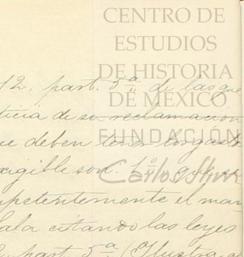 CENTRO DE
ESTUDIOS
DE HISTORIA
DE MÉXICO
FUNDACIÓN
Carlos Slim
12. part. 5ª de las que
ticia de su reclamacion
ue deben los gastos
exigible son. 1º
petentemente el man
ala citando las leyes
part 5ª (Ilustra